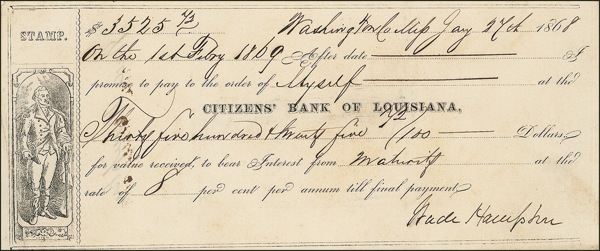 STAMP.
$3525 72/ Washington Co. Miss Jany 27th 1868
On the 1st Febry 1869 After date I
promise to pay to the order of Myself at the
CITIZENS' BANK OF LOUISIANA,
Thirty five hundred & twenty five 72/100 Dollars,
for value received, to bear Interest from Maturity at the
rate of 8 per cent per annum till final payment
Wade Hampton